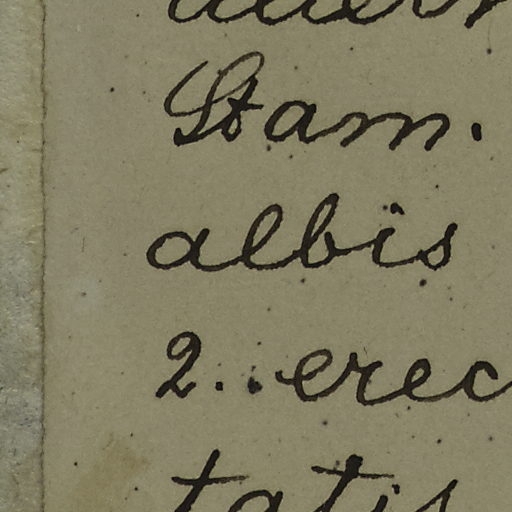 Stam.
albis
2. erec
tatis